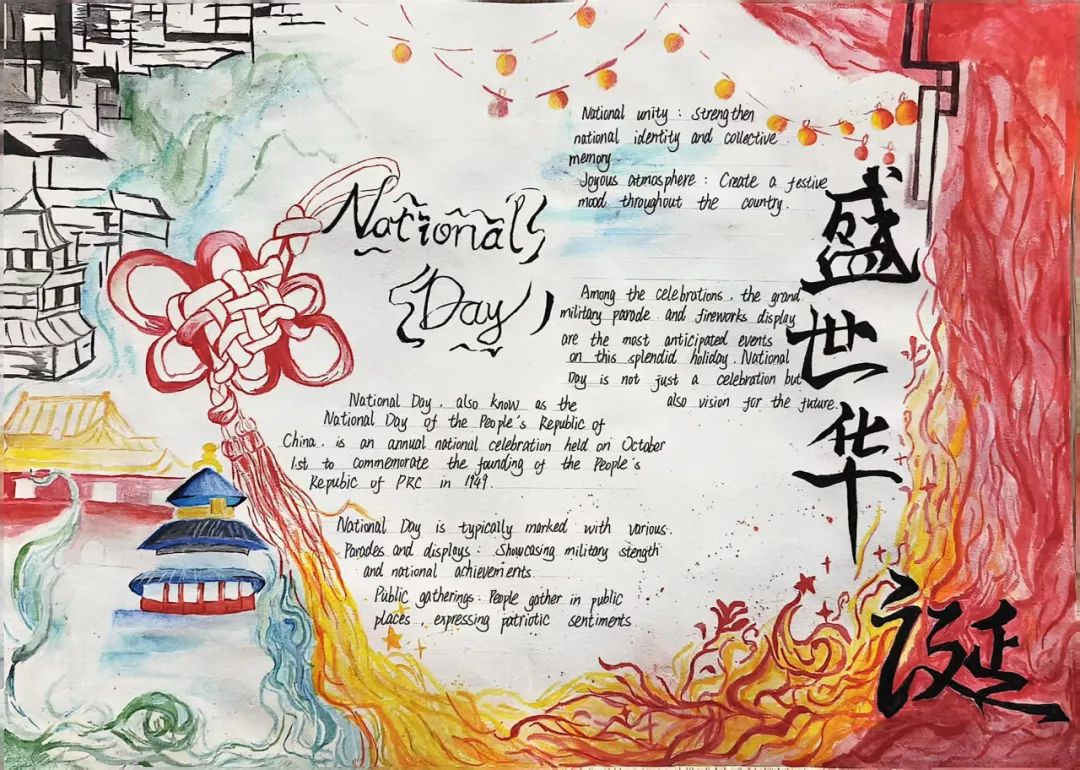 National
Day
National unity : Strengthen
national identity and collective
memory.
Joyous atmosphere : Create a festive
mood throughout the country.
Among the celebrations , the grand
military parade and fireworks display
are the most anticipated events
on this splendid holiday . National
Day is not just a celebration but
also vision for the future.
National Day , also know as the
National Day of the People's Republic of
China , is an annual national celebration held on October
1st to commemorate the founding of the People's
Repubic of PRC in 1949.
National Day is typically marked with various.
Parades and displays : Showcasing military stength
and national achievements.
Public gatherings : People gather in public
places , expressing patriotic sentiments
盛世华诞